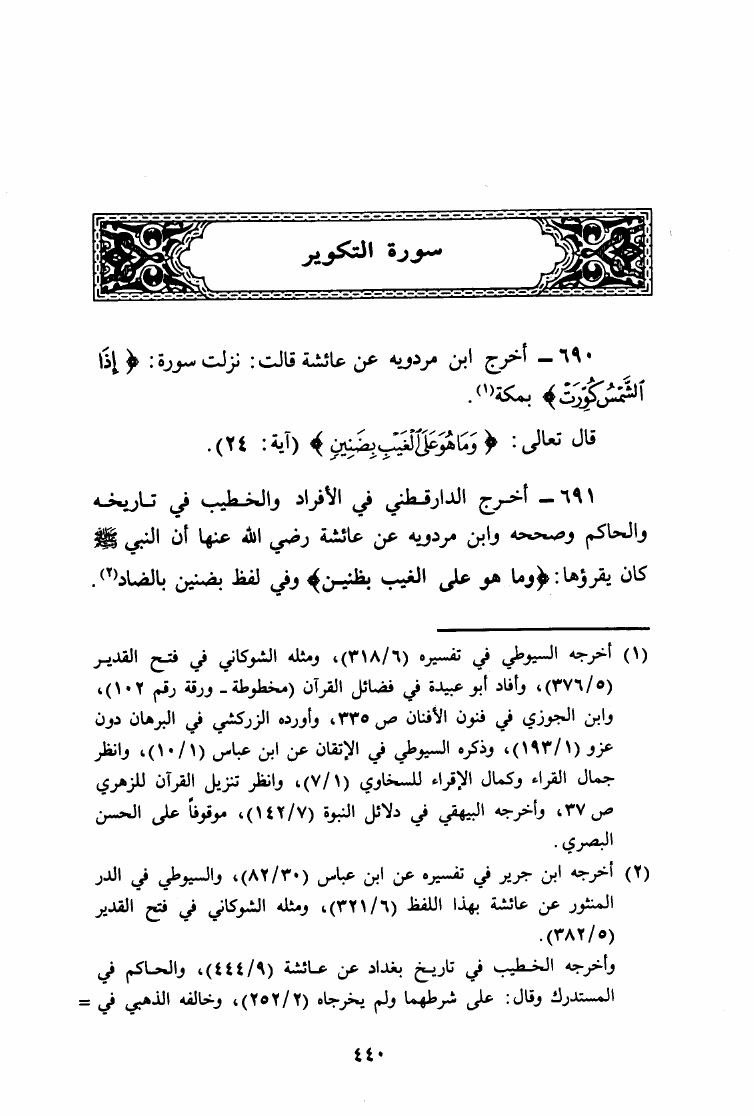 سورة التكوير
٦٩٠ ــ أخرج ابن مردويه عن عائشة قالت: نزلت سورة: ﴿ إِذَا
ٱلشَّمْسُ كُوِّرَتْ ﴾ بمكة(١).
قال تعالى: ﴿ وَمَا هُوَ عَلَى ٱلْغَيْبِ بِضَنِينٍ ﴾ (آية: ٢٤).
٦٩١ ــ أخرج الدارقطني في الأفراد والخطيب في تاريخه
والحاكم وصححه وابن مردويه عن عائشة رضي الله عنها أن النبي ﷺ
كان يقرؤها: ﴿وما هو على الغيب بظنين﴾ وفي لفظ بضنين بالضاد(٢).
(١) أخرجه السيوطي في تفسيره (٣١٨/٦)، ومثله الشوكاني في فتح القدير
(٣٧٦/٥)، وأفاد أبو عبيدة في فضائل القرآن (مخطوطة ـ ورقة رقم ١٠٢)،
وابن الجوزي في فنون الأفنان ص ٣٣٥، وأورده الزركشي في البرهان دون
عزو (١٩٣/١)، وذكره السيوطي في الإتقان عن ابن عباس (١٠/١)، وانظر
جمال القراء وكمال الإقراء للسخاوي (٧/١)، وانظر تنزيل القرآن للزهري
ص ٣٧، وأخرجه البيهقي في دلائل النبوة (١٤٢/٧)، موقوفاً على الحسن
البصري.
(٢) أخرجه ابن جرير في تفسيره عن ابن عباس (٨٢/٣٠)، والسيوطي في الدر
المنثور عن عائشة بهذا اللفظ (٣٢١/٦)، ومثله الشوكاني في فتح القدير
(٣٨٢/٥).
وأخرجه الخطيب في تاريخ بغداد عن عائشة (٤٤٤/٩)، والحاكم في
المستدرك وقال: على شرطهما ولم يخرجاه (٢٥٢/٢)، وخالفه الذهبي في =
٤٤٠